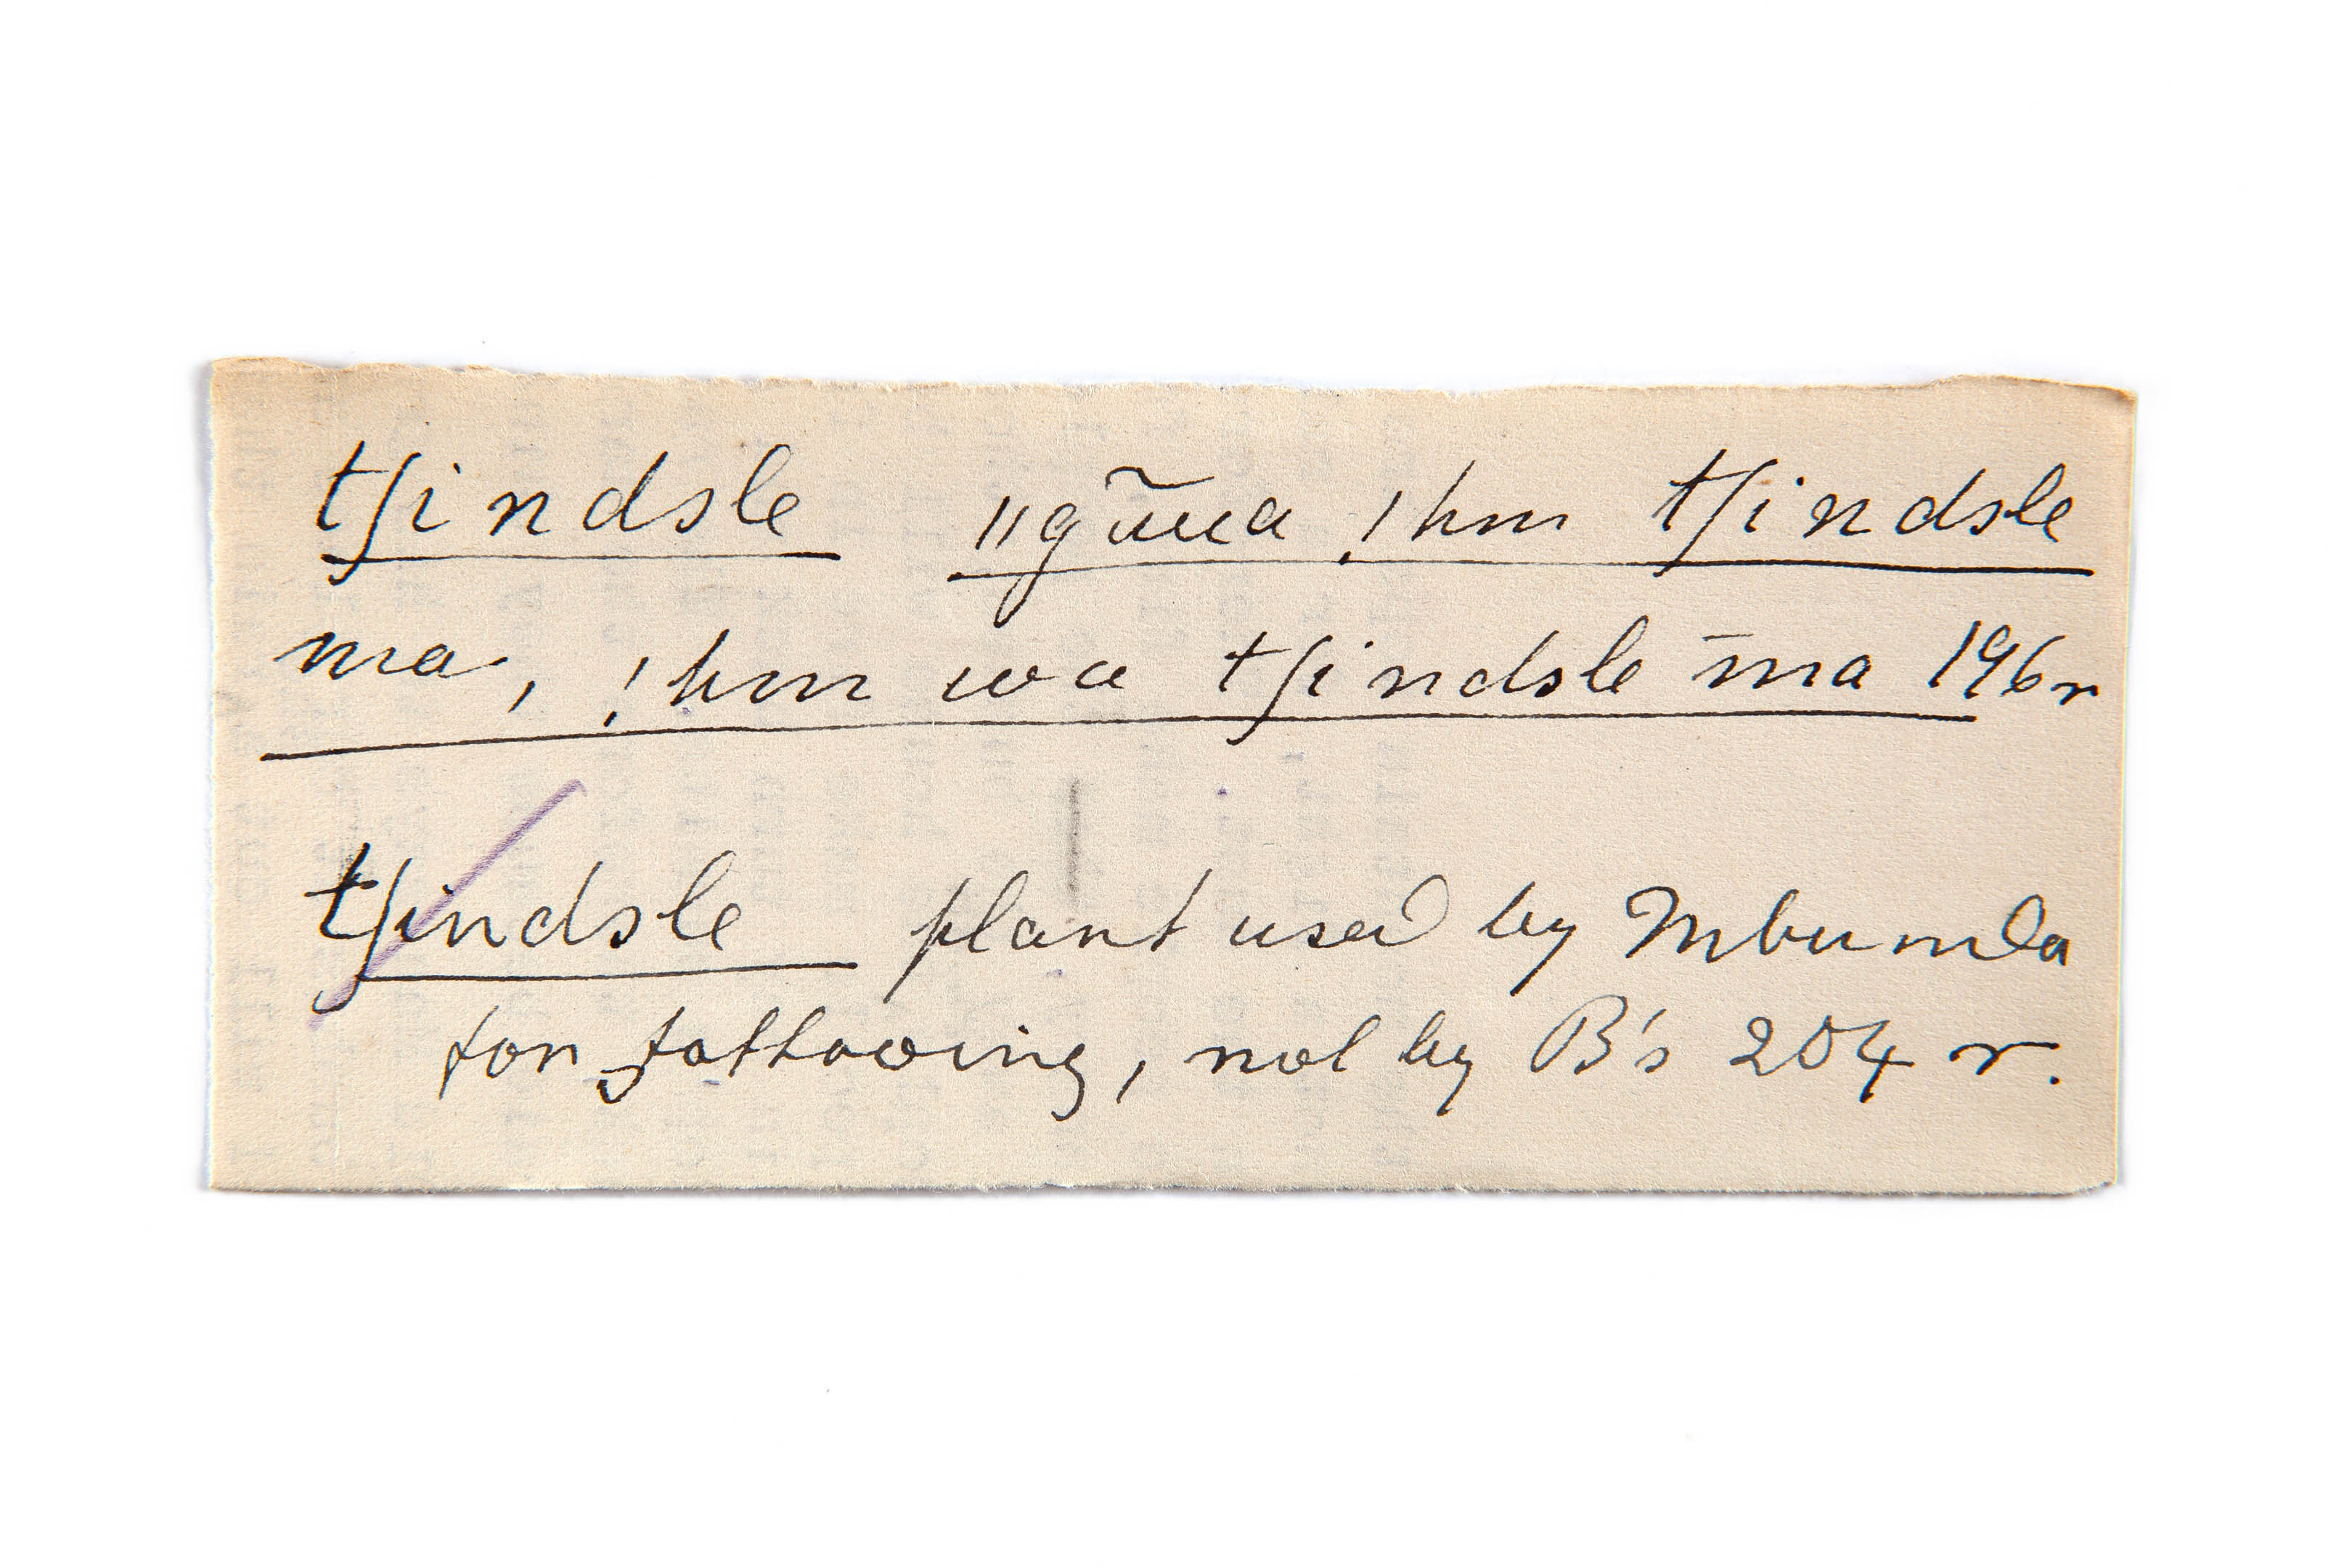 tʃindsle ǁgũua !hm tʃindsle
ma, !hm wa tʃindsle m̄a 196r
tʃindsle plant used by Mbunda
for tattooing, not by B's 204 r.